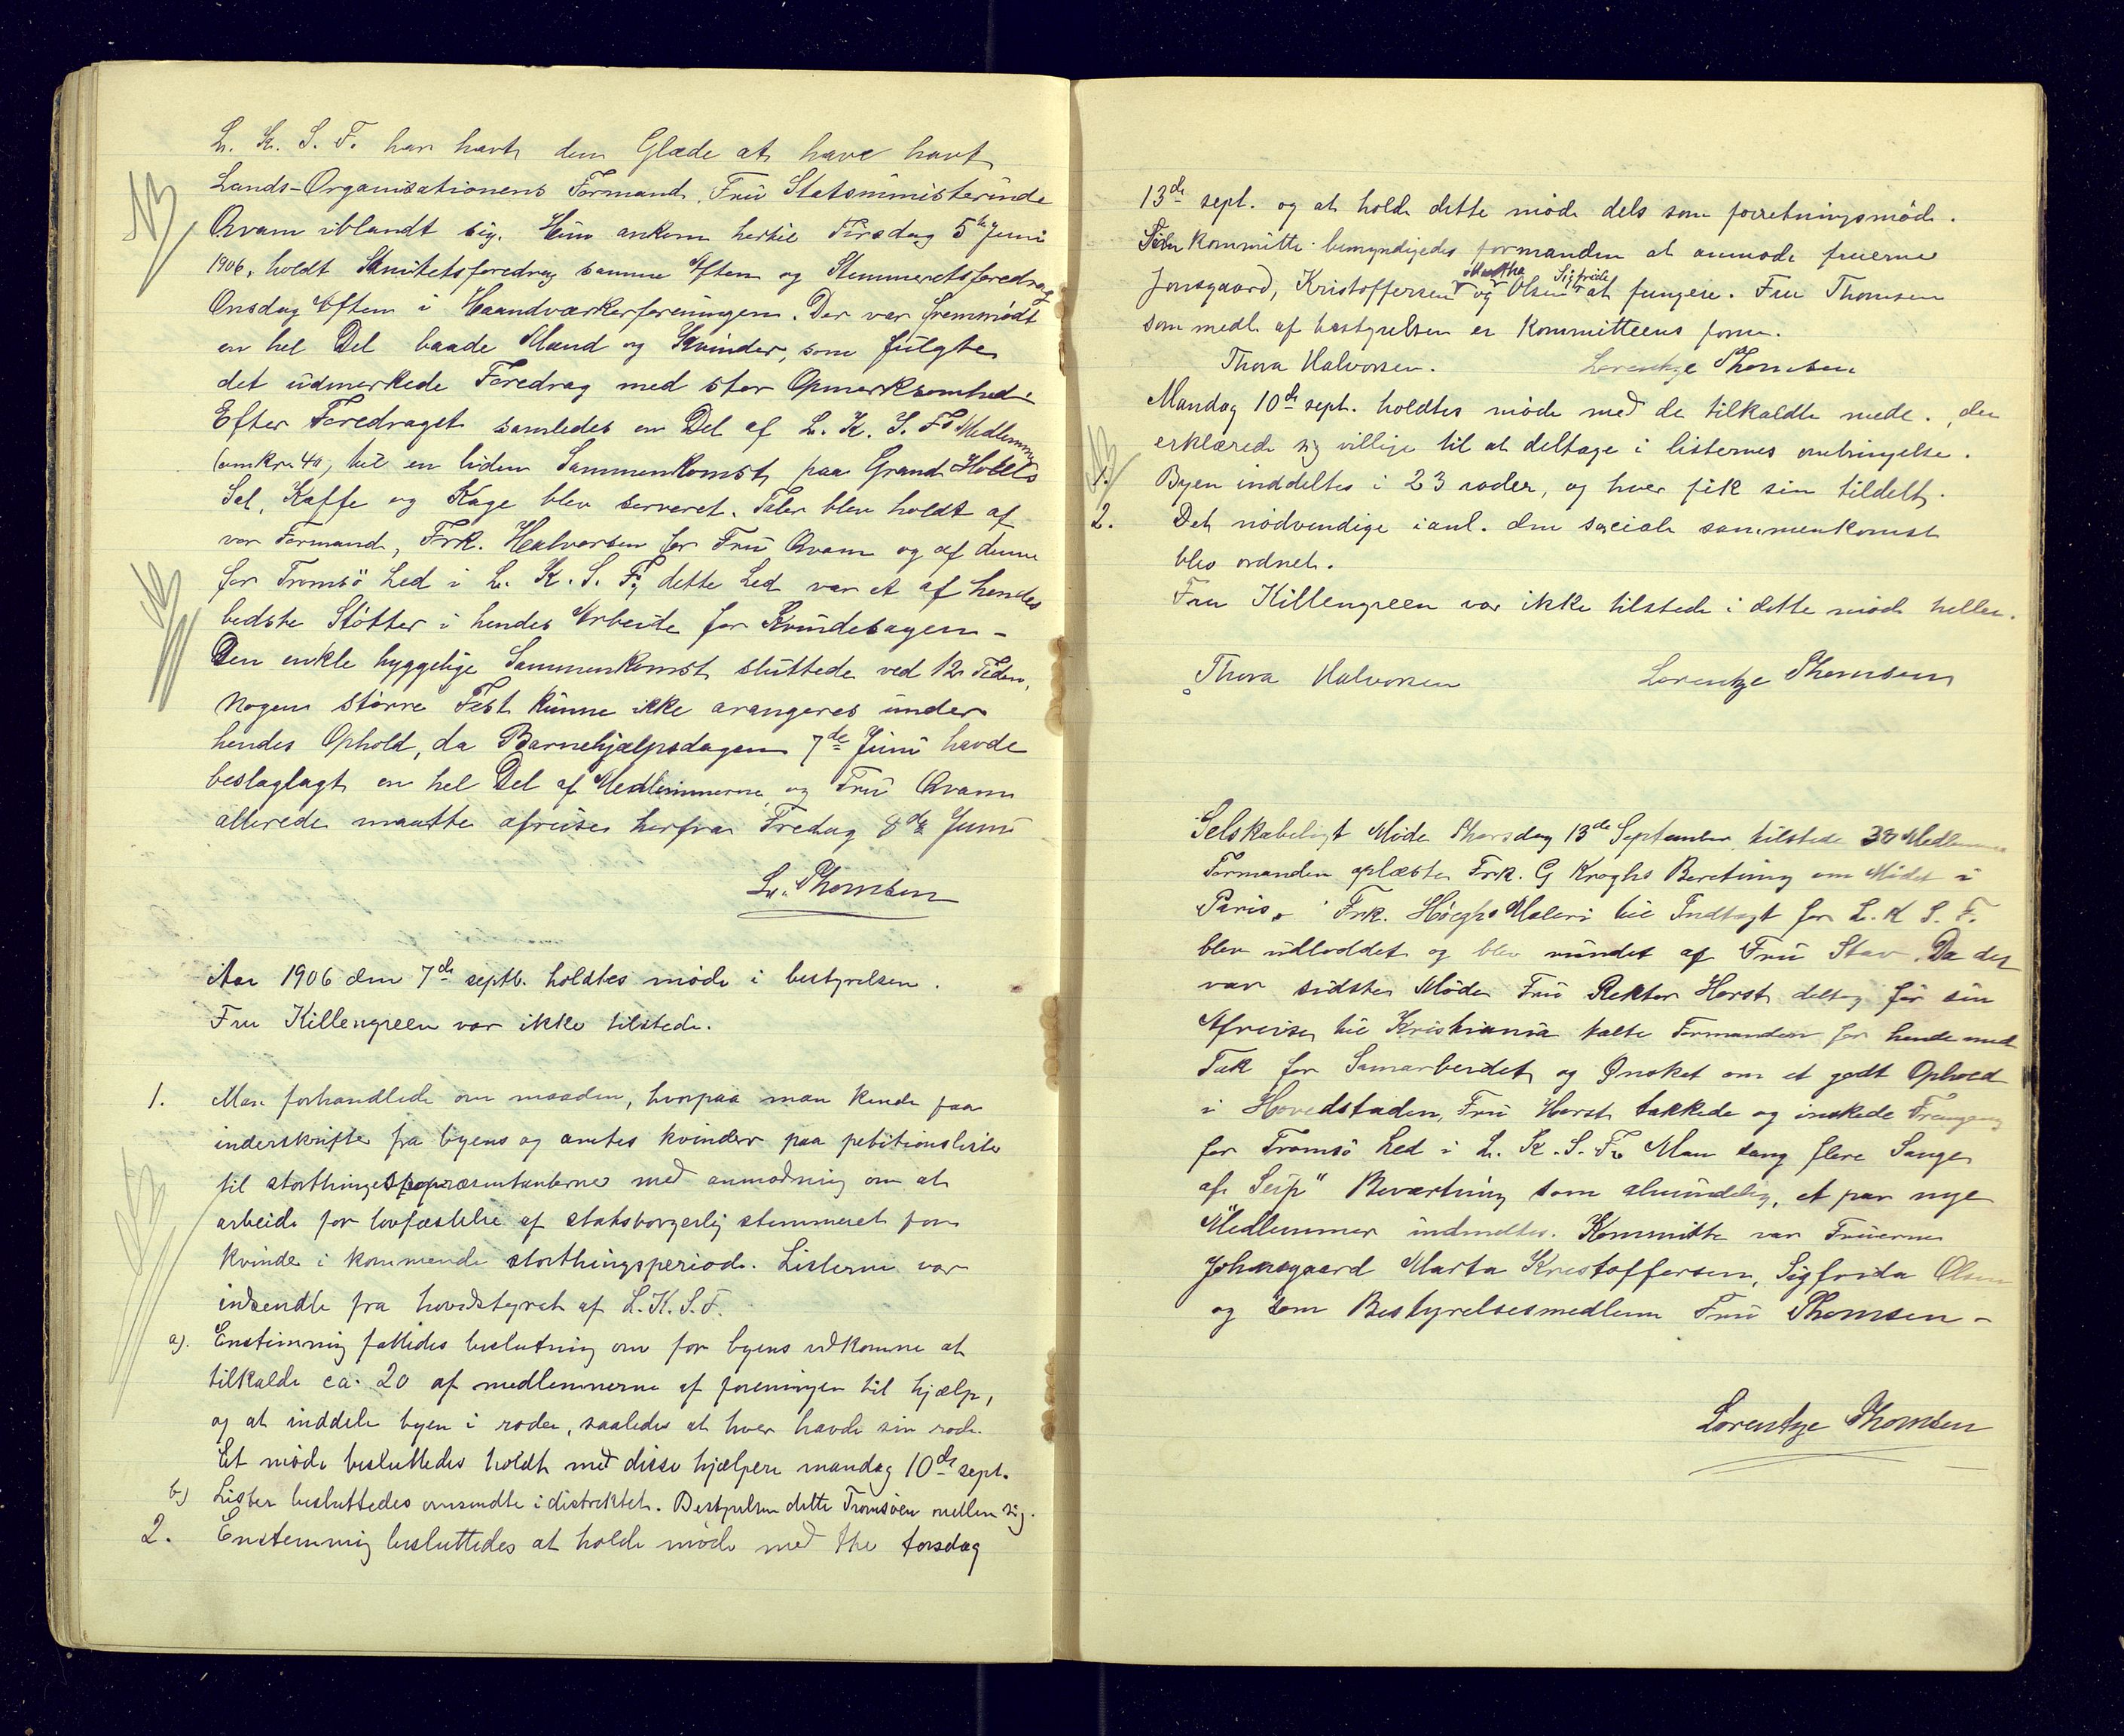 L. K. S. F. har havt den Glæde at have havt
Lands-Organisationens Formand, Fru Statsministerinde
NB
Qvam iblandt sig. Hun ankom hertil Tirsdag 5te Juni
1906, holdt Sanitetsforedrag samme Aften og Stemmeretsforedrag
Onsdag Aften i Haandværkerforeningen. Der var fremmødt
en hel Del baade Mænd og Kvinder, som fulgte
det udmerkede Foredrag med stor Opmerksomhed.
Efter Foredraget samledes en Del af L. K. S. Fs Medlemmer
(omkr. 40) til en liden Sammenkomst paa Grand Hotels
Sal, Kaffe og Kage blev serveret. Taler blev holdt af
vor Formand, Frk. Halvorsen for Fru Qvam og af denne
for Tromsö Led i L. K. S. F; dette Led var et af hendes
bedste Støtter i hendes Arbeide for Kvindesagen –
Den enkle hyggelige Sammenkomst sluttede ved 12 Tiden,
Nogen større Fest kunne ikke arangeres under
hendes Ophold, da Barnehjælpsdagen 7de Juni havde
beslaglagt en hel Del af Medlemmerne og Fru Qvam
allerede maatte afreise herfra Fredag 8de Juni
L. Thomsen
Aar 1906 den 7de septb. holdtes møde i bestyrelsen.
Fru Killengreen var ikke tilstede.
1. Man forhandlede om maaden, hvorpaa man kunde faa
underskrifter fra byens og amtets kvinder paa petitionslister
til storthingsrepræsentanterne med anmodning om at
arbeide for lovfæstelse af statsborgerlig stemmeret for
kvinder i kommende storthingsperiode. Listerne var
indsendte fra hovedstyret af L. K. S. F.
a). Enstemmig fattedes beslutning om for byens vedkomme at
tilkalde ca. 20 af medlemmerne af foreningen til hjælp,
og at inddele byen i roder, saaledes at hver havde sin rode.
Et møde besluttedes holdt med disse hjælpere mandag 10de sept.
b) Lister besluttedes omsendte i distriktet. Bestyrelsen delte Tromsøen mellem sig.
2. Enstemmig besluttedes at holde møde med the torsdag
13de sept. og at holde dette møde dels som forretningsmøde.
Som kommitte bemyndigedes formanden at anmode fruerne
Martha Sigfride
Jonsgaard, Kristoffersen og Olsen at fungere. Fru Thomsen
som medl. af bestyrelsen er kommitteens form.
Thora Halvorsen. Lorentze Thomsen
Mandag 10de sept. holdtes møde med de tilkaldte medl., der
erklærede sig villige til at deltage i listernes ombringelse.
NB
1. Byen inddeltes i 23 roder, og hver fik sin tildelt.
2. Det nødvendige i anl. den sociale sammenkomst
blev ordnet.
Fru Killengreen var ikke tilstede i dette møde heller.
Thora Halvorsen Lorentze Thomsen
Selskabeligt Møde Thorsdag 13de September, tilstede 38 Medlemmer
Formanden oplæste Frk. G Kroghs Beretning om Mødet i
Paris. Frk. Höeghs Maleri til Indtægt for L. K S. F.
blev udloddet og blev vundet af Fru Stav. Da det
var sidste Møde Fru Rektor Horst deltog før sin
Afreise til Kristiania talte Formanden for hende med
Tak for Samarbeidet og Ønsket om et godt Ophold
i Hovedstaden, Fru Horst takkede og ønskede Fremgang
for Tromsö Led i L. K. S. F. Man sang flere Sange
af "Seip" Beværtning som almindelig, et par nye
Medlemmer indmeldtes. Kommitte var Fruerne
Johnsgaard Marta Kristoffersen, Sigfrida Olsen
og som Bestyrelsesmedlem Fru Thomsen –
Lorentze Thomsen